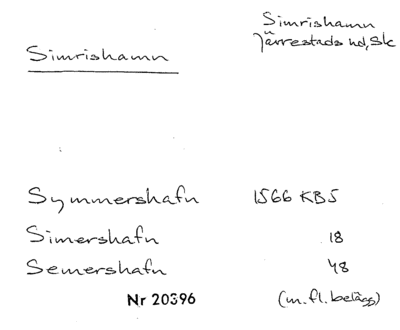 Simrishamn
Järrestads hd, Sk
Simrishamn
Symmershafn 1566 KB5
Simershafn 18
Semershafn 48
Nr 20396 (m.fl. belägg)